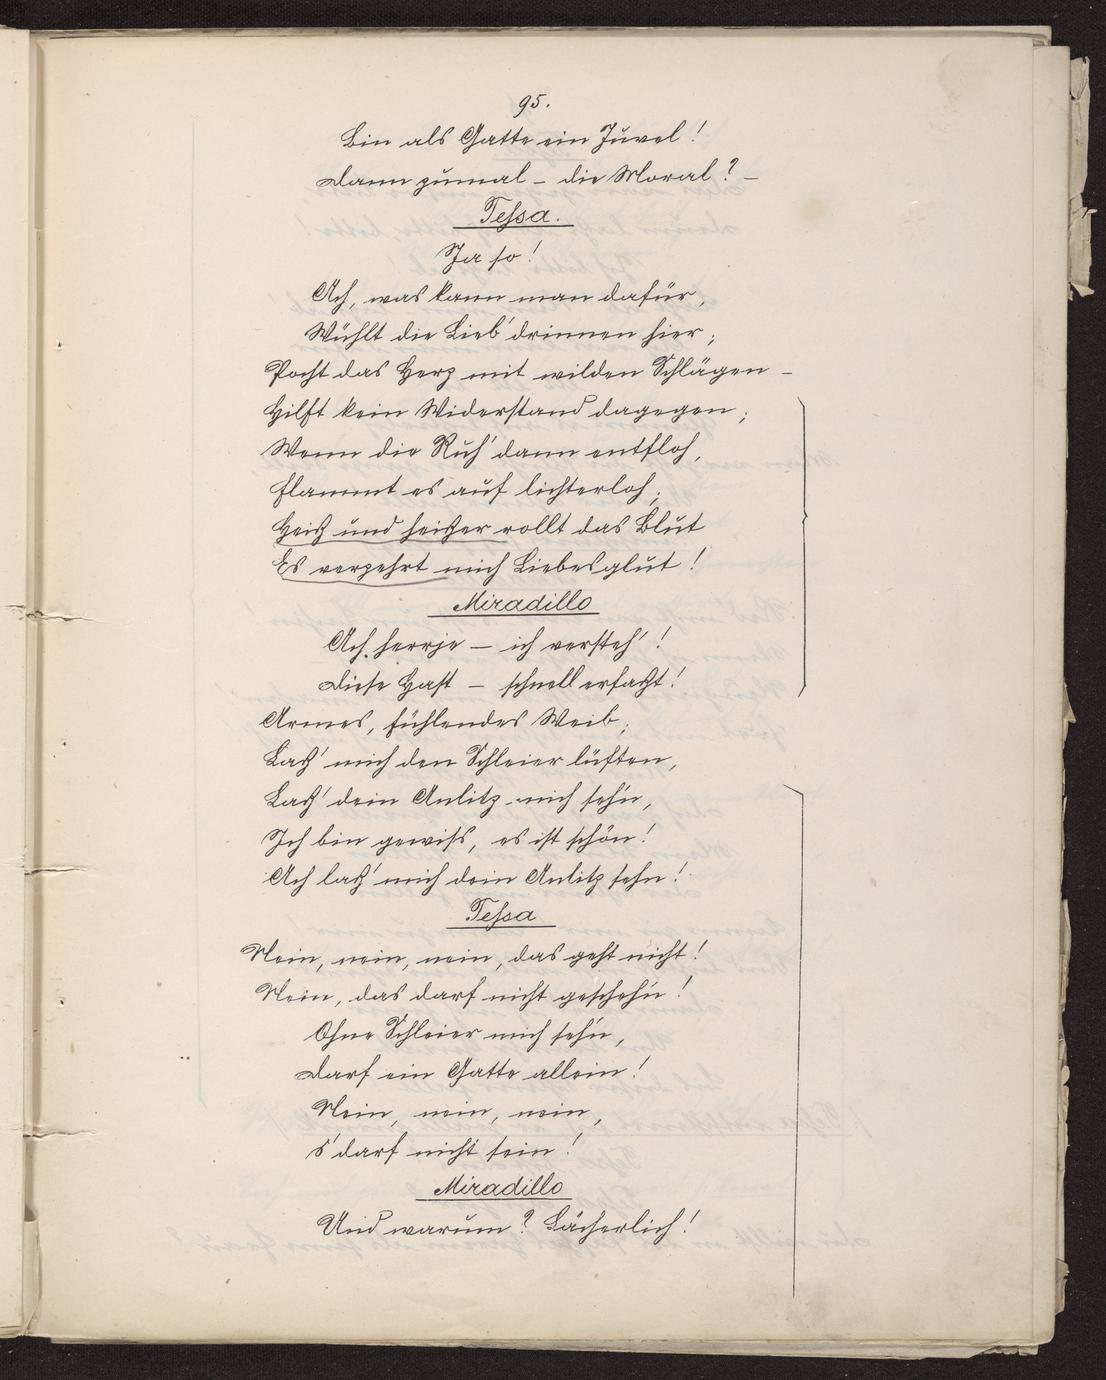 95.
Bin als Gatte ein Juwel!
Dann zumal – die Moral? –
Tessa.
Ja so!
Ach, was kann man dafür,
Wühlt die Lieb' drinnen hier;
Pocht das Herz mit wilden Schlägen –
Hilft kein Widerstand dagegen;
Wenn die Ruh' dann entfloh,
Flammt es auf lichterloh;
Heiß und heißer rollt das Blut
Es verzehrt mich Liebesglut!
Miradillo
Ach herrje – ich versteh'!
Diese Hast – schnell erfaßt!
Armes, fühlendes Weib;
Laß' mich den Schleier lüften,
Laß' dein Antlitz mich seh'n,
Ich bin gewiss, es ist schön!
Ach laß' mich dein Antlitz sehn!
Tessa
Nein, nein, nein, das geht nicht!
Nein, das darf nicht gescheh'n!
Ohne Schleier mich seh'n,
Darf ein Gatte allein!
Nein, nein, nein,
s'darf nicht sein!
Miradillo
Und warum? Lächerlich!